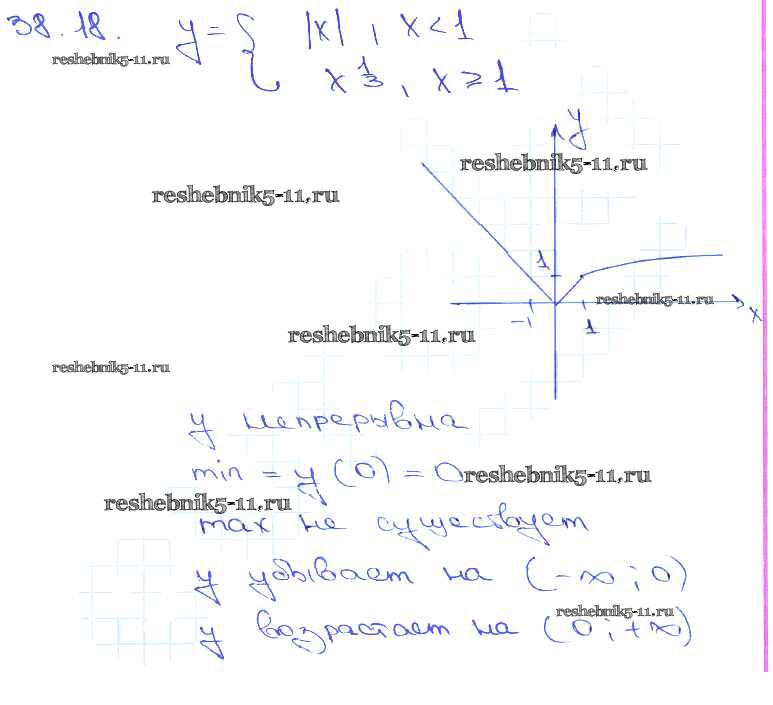 38.18. y = { |x|, x < 1
x^{1/3}, x ≥ 1
reshebnik5-11.ru
y
reshebnik5-11.ru
reshebnik5-11.ru
1
reshebnik5-11.ru
-1 1 x
reshebnik5-11.ru
reshebnik5-11.ru
y непрерывна
min = y(0) = 0
reshebnik5-11.ru
reshebnik5-11.ru
max не существует
y убывает на (-∞; 0)
reshebnik5-11.ru
y возрастает на (0; +∞)